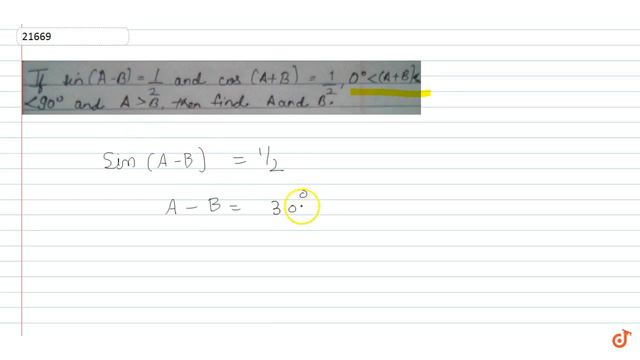 21669
If sin (A-B) = 1/2 and cos (A+B) = 1/2, 0° < (A+B) <
< 90° and A > B, then find A and B.
Sin (A-B) = 1/2
A - B = 30°
doubtnut